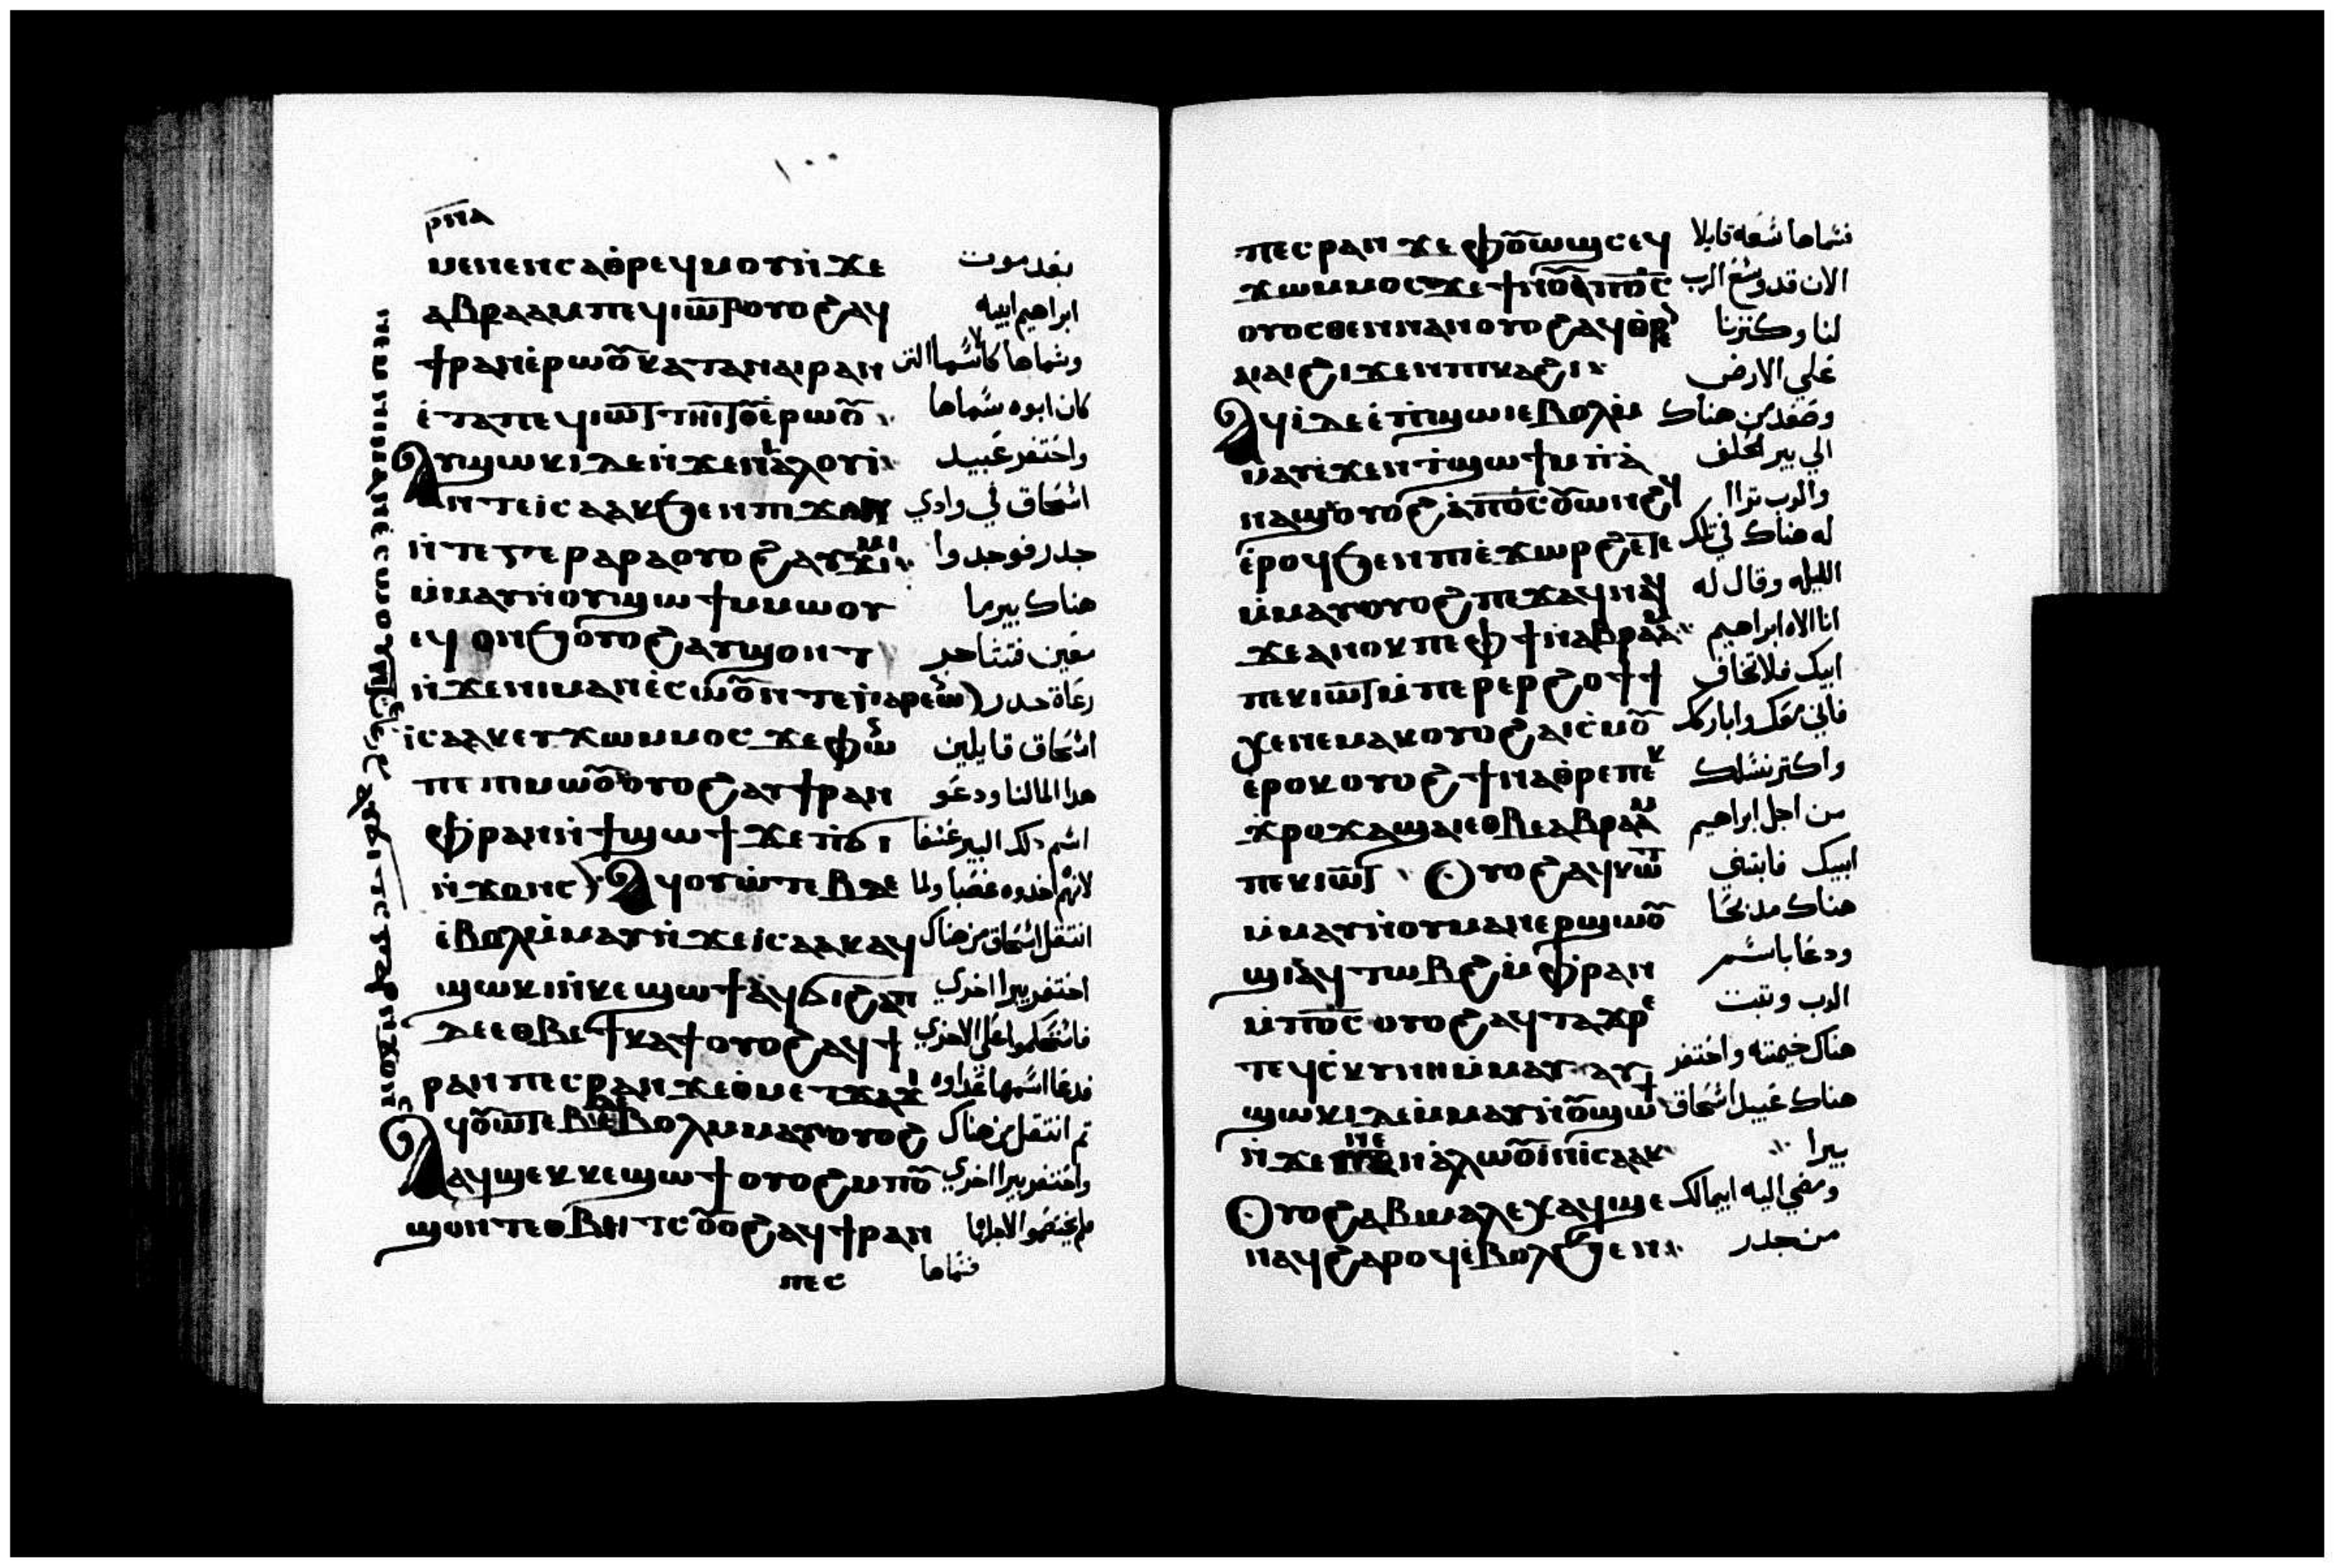 ١٠٠
ⲣⲛⲁ
ⲙⲉⲛⲉⲛⲥⲁⲑⲣⲉϥⲙⲟⲩⲛ̀ϫⲉ بعد موت
ⲁⲃⲣⲁⲁⲙⲡⲉϥⲓⲱⲧⲟⲩⲟϩⲁϥ ابراهيم ابيه
ϯⲣⲁⲛⲉ̀ⲣⲱⲟⲩⲕⲁⲧⲁⲛⲁⲓⲣⲁⲛ وسماها كالاسما التى
ⲉ̀ⲧⲁⲡⲉϥⲓⲱⲧⲧⲏⲓⲧⲟⲩⲉ̀ⲣⲱⲟⲩ كان ابوه سماها
ⲁⲩϣⲱⲕⲓⲇⲉⲛ̀ϫⲉⲛⲓⲁ̀ⲗⲱⲟⲩⲓ̀ واحتفر عبيد
ⲛⲧⲉⲓⲥⲁⲁⲕϧⲉⲛⲡⲓϫⲟⲗ اسحاق في وادي
ⲛ̀ⲧⲉⲅⲉⲣⲁⲣⲁⲟⲩⲟϩⲁⲩϫⲓⲙⲓ جدر فوجدوا
ⲙ̀ⲙⲁⲩⲛ̀ⲟⲩϣⲱϯⲙⲙⲱⲟⲩ هناك بير ما
ⲉϥⲟⲛϧⲟⲩⲟϩⲁⲩϣⲟⲛⲧ معين فتشاجر
ⲛ̀ϫⲉⲛⲓⲙⲁⲛⲉ̀ⲥⲱⲟⲩⲛⲧⲉ رعاة جدر
ⲓⲥⲁⲁⲕⲉⲩϫⲱⲙⲙⲟⲥϫⲉⲫⲱ اسحاق قايلين
ⲡⲉⲡⲓⲙⲱⲟⲩⲟⲩⲟϩⲁⲩϯⲣⲁⲛ هدا الما لنا ودعو
ⲫⲣⲁⲛⲛ̀ϯϣⲱϯϫⲉⲡϭⲓ اسم دلك البير غشفا
ⲛ̀ϫⲟⲛⲥ ⲁϥⲟⲩⲱⲧⲉⲃⲇⲉ لانهم اخدوه غصبا ولما
ⲉ̀ⲃⲟⲗⲙ̀ⲙⲁⲩⲛ̀ϫⲉⲓⲥⲁⲁⲕⲁϥ انتقل اسحاق من هناك
ϣⲱⲕⲓⲛ̀ⲕⲉϣⲱϯⲁϥϭⲓϩⲁⲡ احتفر بيرا اخري
ⲇⲉⲉⲑⲃⲉϯⲕⲁϯⲟⲩⲟϩⲁϥϯ
ⲣⲁⲛⲡⲉⲥⲣⲁⲛϫⲉⲑⲙⲉⲧϫⲁϫⲓ فدعا اسمها عداوه
ⲁϥⲟⲩⲱⲧⲉⲃⲉⲃⲟⲗⲙⲙⲁⲩⲟⲩⲟϩ تم انتقل من هناك
ⲁϥϣⲉⲕⲕⲉϣⲱϯⲟⲩⲟϩⲙⲡⲟⲩ واحتفر بيرا اخري
ϣⲟⲛⲧⲉⲑⲃⲏⲧⲥⲟⲩⲟϩⲁϥϯⲣⲁⲛ
ⲡⲉⲥ فسماها
ⲡⲉⲥⲣⲁⲛϫⲉⲫⲟⲩⲱϣⲥⲉϥ فسماها سعه قايلا
ϫⲱⲙⲙⲟⲥϫⲉϯⲛⲟⲩⲁⲡϭⲥ الان قد وسع الرب
ⲟⲩⲟⲥⲑⲉⲛⲛⲁⲛⲟⲩⲟϩⲁϥⲑⲣⲉ لنا وكترنا
ⲁⲓⲁⲓϩⲓϫⲉⲛⲡⲓⲕⲁϩⲓ علي الارض
ⲁϥⲓ̀ⲇⲉⲉ̀ⲡϣⲱⲓⲉⲃⲟⲗⲙ̀ وصعد من هناك
ⲙⲁⲩⲉ̀ϫⲉⲛⲧϣⲱϯⲙⲡⲁ̀ الي بير الحلف
ⲛⲁϣⲟⲩⲟϩⲁ̀ⲡϭⲥⲟⲩⲱⲛϩϥ والرب تراا
ⲉ̀ⲣⲟϥϧⲉⲛⲡⲓⲉ̀ϫⲱⲣϩⲉⲧⲉ له هناك في تلك
ⲙ̀ⲙⲁⲩⲟⲩⲟϩⲡⲉϫⲁϥⲛⲁϥ الليله وقال له
ϫⲉⲁⲛⲟⲕⲡⲉⲫϯⲛⲁⲃⲣⲁⲁⲙ انا الاه ابراهيم
ⲡⲉⲕⲓⲱⲧⲙ̀ⲡⲉⲣⲉⲣϩⲟϯ ابيك فلا تخاف
ϫⲉⲛⲉⲙⲁⲕⲟⲩⲟϩⲁⲓⲥ̀ⲙⲟⲩ فاني معك واباركك
ⲉ̀ⲣⲟⲕⲟⲩⲟϩϯⲛⲁⲑⲣⲉⲡⲉⲕ واكتر نسلك
ϫⲣⲟϫⲁϣⲁⲓⲉⲑⲃⲉⲁⲃⲣⲁⲁⲙ من اجل ابراهيم
ⲡⲉⲕⲓⲱⲧ ⲟⲩⲟϩⲁϥⲕⲱⲧ ابيك فابتني
ⲙ̀ⲙⲁⲩⲛ̀ⲟⲩⲙⲁⲛⲉⲣϣⲱⲟⲩ هناك مدبحا
ϣⲓⲁϥⲧⲱⲃϩⲙ̀ⲫⲣⲁⲛ ودعا باسم
ⲙ̀ⲡϭⲥ ⲟⲩⲟϩⲁϥⲧⲁϫⲣⲉ الرب وتبت
ⲧⲉϥⲥⲕⲩⲛⲏⲙ̀ⲙⲁⲩ ⲁⲩ هناك خيمته واحتفر
ϣⲱⲕⲓⲇⲉⲙ̀ⲙⲁⲩⲛ̀ⲟⲩϣⲱϯ هناك عبيد اسحاق
ⲛ̀ϫⲉⲛⲓⲁ̀ⲗⲱⲟⲩⲓⲛⲓⲥⲁⲁⲕ بيرا
ⲟⲩⲟϩⲁⲃⲓⲙⲁⲗⲉⲭⲁϥϣⲉ ومضي اليه ابيمالك
ⲛⲁϥϩⲁⲣⲟϥⲉ̀ⲃⲟⲗϧⲉⲛ من جدر